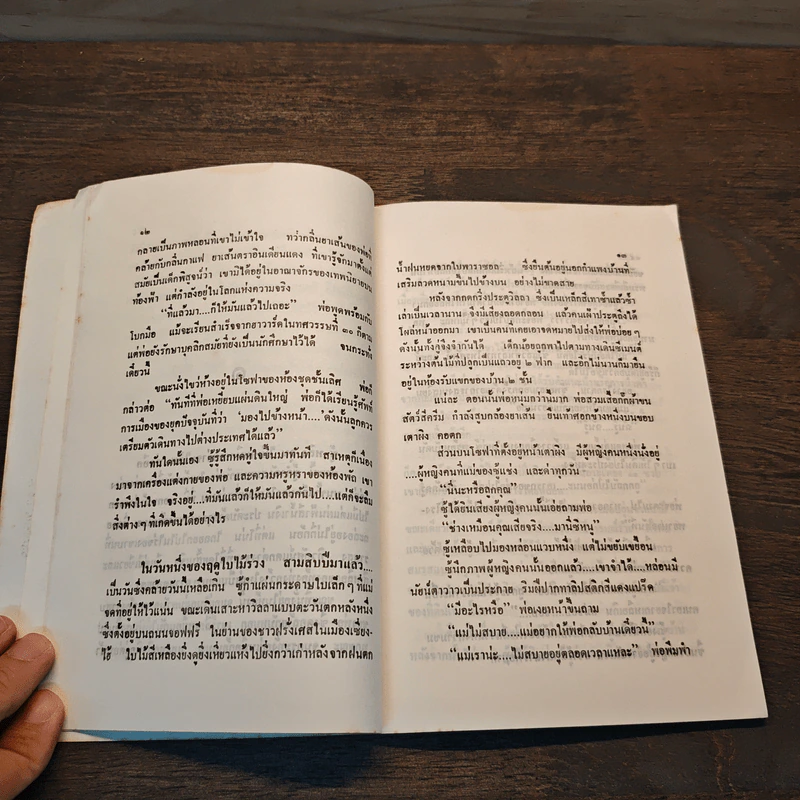 ๑๒
กลายเป็นภาพหลอนที่เขาไม่เข้าใจ ทว่ากลิ่นยาเส้นของพ่อที่
คล้ายกับกลิ่นกาแฟ ยาเส้นตราอินเดียนแดง ที่เขารู้จักมาตั้งแต่
สมัยเป็นเด็กพิสูจน์ว่า เขามิได้อยู่ในอาณาจักรของเทพนิยายบน
ท้องฟ้า แต่กำลังอยู่ในโลกแห่งความจริง
"ที่แล้วมา....ก็ให้มันแล้วไปเถอะ" พ่อพูดพร้อมกับ
โบกมือ แม้จะเรียนสำเร็จจากฮาวาร์ดในทศวรรษที่ ๓๐ ก็ตาม
แต่พ่อยังรักษาบุคลิกสมัยที่ยังเป็นนักศึกษาไว้ได้ จนกระทั่ง
เดี๋ยวนี้
ขณะนั่งไขว่ห้างอยู่ในโซฟาของห้องชุดชั้นเลิศ พ่อก็
กล่าวต่อ "ทันทีที่พ่อเหยียบแผ่นดินใหญ่ พ่อก็ได้เรียนรู้ศัพท์
การเมืองของยุคปัจจุบันที่ว่า 'มองไปข้างหน้า....' ดังนั้นลูกควร
เตรียมตัวเดินทางไปต่างประเทศได้แล้ว"
ทันใดนั้นเอง ซู้รู้สึกหดหู่ใจขึ้นมาทันที สาเหตุก็เนื่อง
มาจากเครื่องแต่งกายของพ่อ และความหรูหราของห้องพัก เขา
รำพึงในใจ จริงอยู่....ที่มันแล้วก็ให้มันแล้วกันไป....แต่ก็จะลืม
สิ่งต่างๆ ที่เกิดขึ้นได้อย่างไร
ในวันหนึ่งของฤดูใบไม้ร่วง สามสิบปีมาแล้ว....
เป็นวันซึ่งคล้ายวันนี้เหลือเกิน ซู้กำแผ่นกระดาษใบเล็กๆ ที่แม่
จดที่อยู่ให้ไว้แน่น ขณะเดินเสาะหาวิลลาแบบตะวันตกหลังหนึ่ง
ซึ่งตั้งอยู่บนถนนจอฟฟรี ในย่านของชาวฝรั่งเศสในเมืองเซี่ยง-
ไฮ้ ใบไม้สีเหลืองยิ่งดูยิ่งเหี่ยวแห้งไปยิ่งกว่าเก่าหลังจากฝนตก
๑๓
น้ำฝนหยดจากใบพาราซอล ซึ่งยืนต้นอยู่นอกกำแพงบ้านที่
เสริมลวดหนามขึ้นไปข้างบน อย่างไม่ขาดสาย
หลังจากกดกริ่งประตูวิลลา ซึ่งเป็นเหล็กสีเทาซ้ำแล้วซ้ำ
เล่าเป็นเวลานาน จึงมีเสียงถอดกลอน แล้วคนเฝ้าประตูถึงได้
โผล่หน้าออกมา เขาเป็นคนที่เคยเอาจดหมายไปส่งให้พ่อบ่อยๆ
ดังนั้นทั้งคู่จึงจำกันได้ เด็กน้อยถูกพาไปตามทางเดินซีเมนต์
ระหว่างต้นไม้ที่ปลูกเป็นแถวอยู่ ๒ ฟาก และอีกไม่นานก็มายืน
อยู่ในห้องรับแขกของบ้าน ๒ ชั้น
แน่ละ ตอนนั้นพ่อหนุ่มกว่านี้มาก พ่อสวมเสื้อกั๊กผ้าขน
สัตว์สีครีม กำลังสูบกล้องยาเส้น ยืนเท้าศอกข้างหนึ่งบนขอบ
เตาผิง คอตก
ส่วนบนโซฟาที่ตั้งอยู่หน้าเตาผิง มีผู้หญิงคนหนึ่งนั่งอยู่
....ผู้หญิงคนที่แม่ของซู้แช่ง และด่าทุกวัน
"นี่น่ะหรือลูกคุณ"
ซู้ได้ยินเสียงผู้หญิงคนนั้นเอ่ยถามพ่อ
"ช่างเหมือนคุณเสียจริง....มานี่ซิหนู"
ซู้เหลือบไปมองหล่อนแวบหนึ่ง แต่ไม่ขยับเขยื้อน
ซู้นึกภาพผู้หญิงคนนั้นออกแล้ว....เขาจำได้....หล่อนมี
นัยน์ตาวาวเป็นประกาย ริมฝีปากทาลิปสติกสีแดงแปร๊ด
"มีอะไรหรือ" พ่อเงยหน้าขึ้นถาม
"แม่ไม่สบาย....แม่อยากให้พ่อกลับบ้านเดี๋ยวนี้"
"แม่เราน่ะ....ไม่สบายอยู่ตลอดเวลาแหละ" พ่อพึมพำ